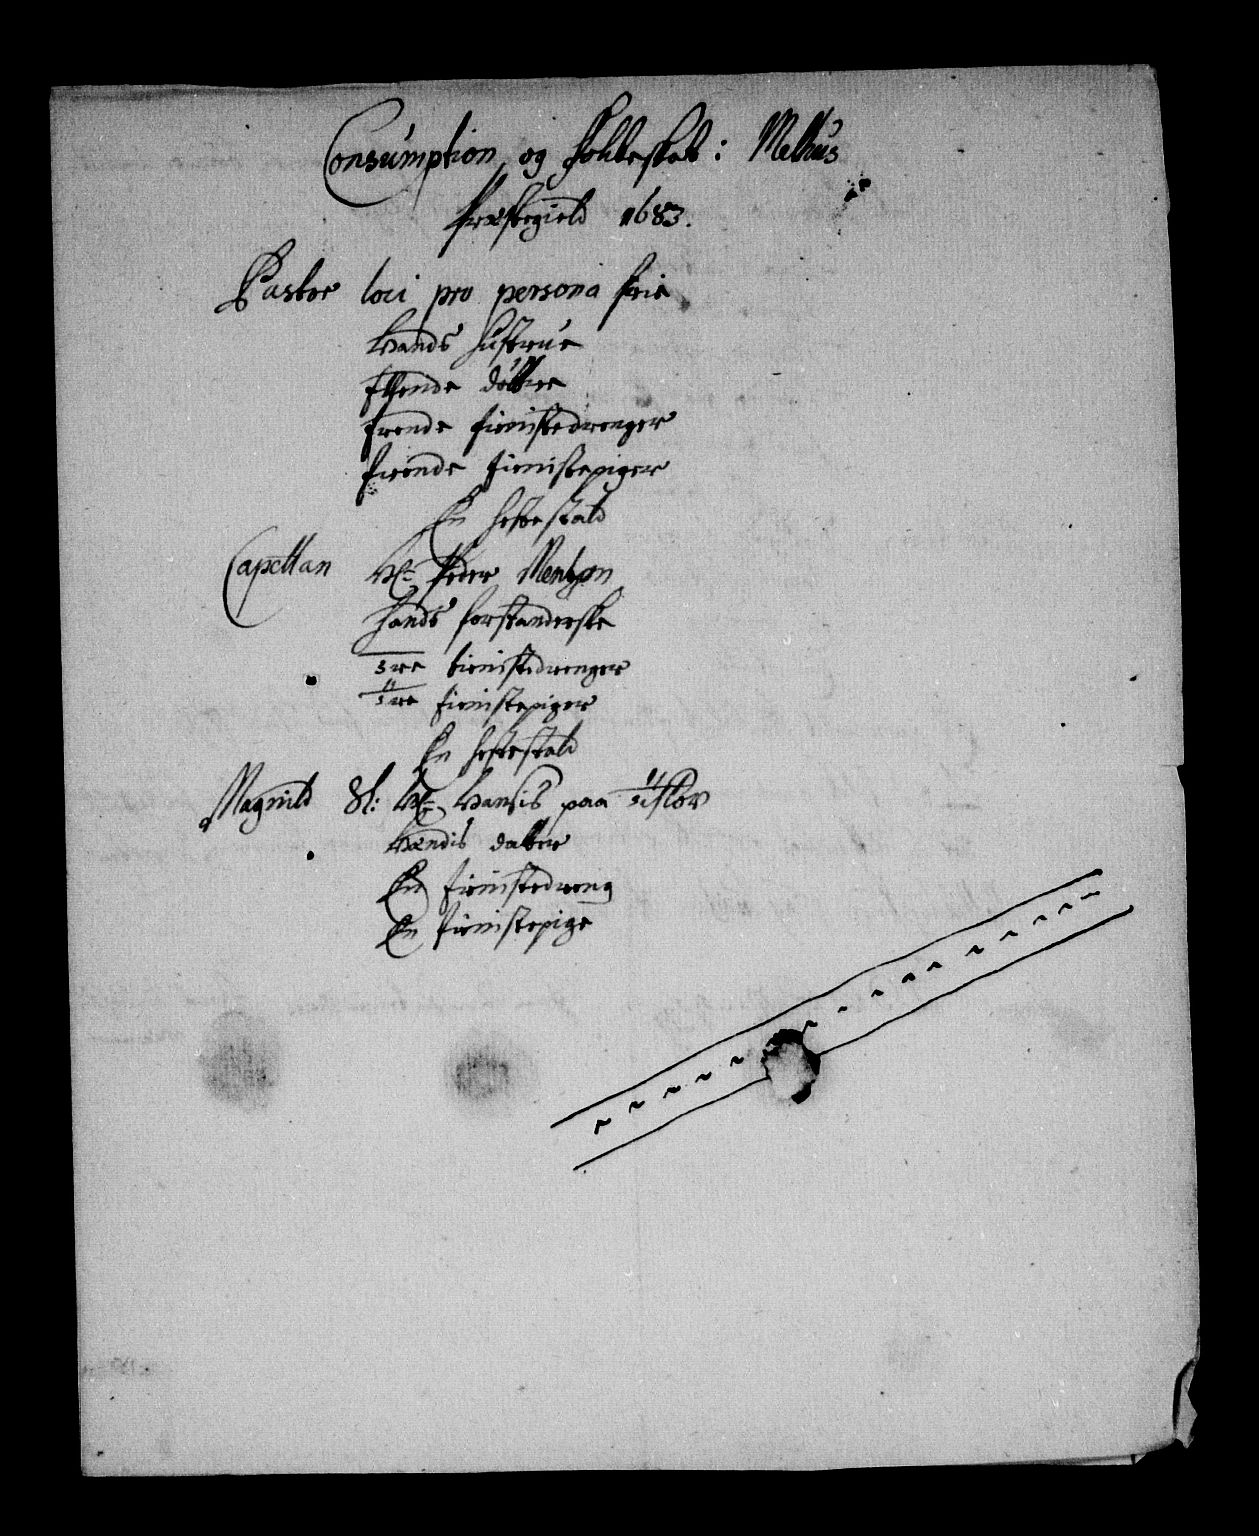 Consumption og Folkeskat: Melhus
Præstegield 1683.
Pastor loci pro persona frie
Hands Hustrue
Thende døttre
trende tienistedrenger
trende tienistepiger
En hestestald
Capellan Hr: Peder Mentzøn
Hands forstanderske
3re tienistedrenger
3re tienistepiger
En hestestald
Magnild Sl: Hr: Hansis paa
Hendis datter
En tienistedreng
En tienistepige